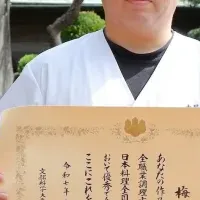 梅
あなたの作
全職業調理士
日本料理全国
おいて優秀な
ここにこれを
令和七年
文部科学大